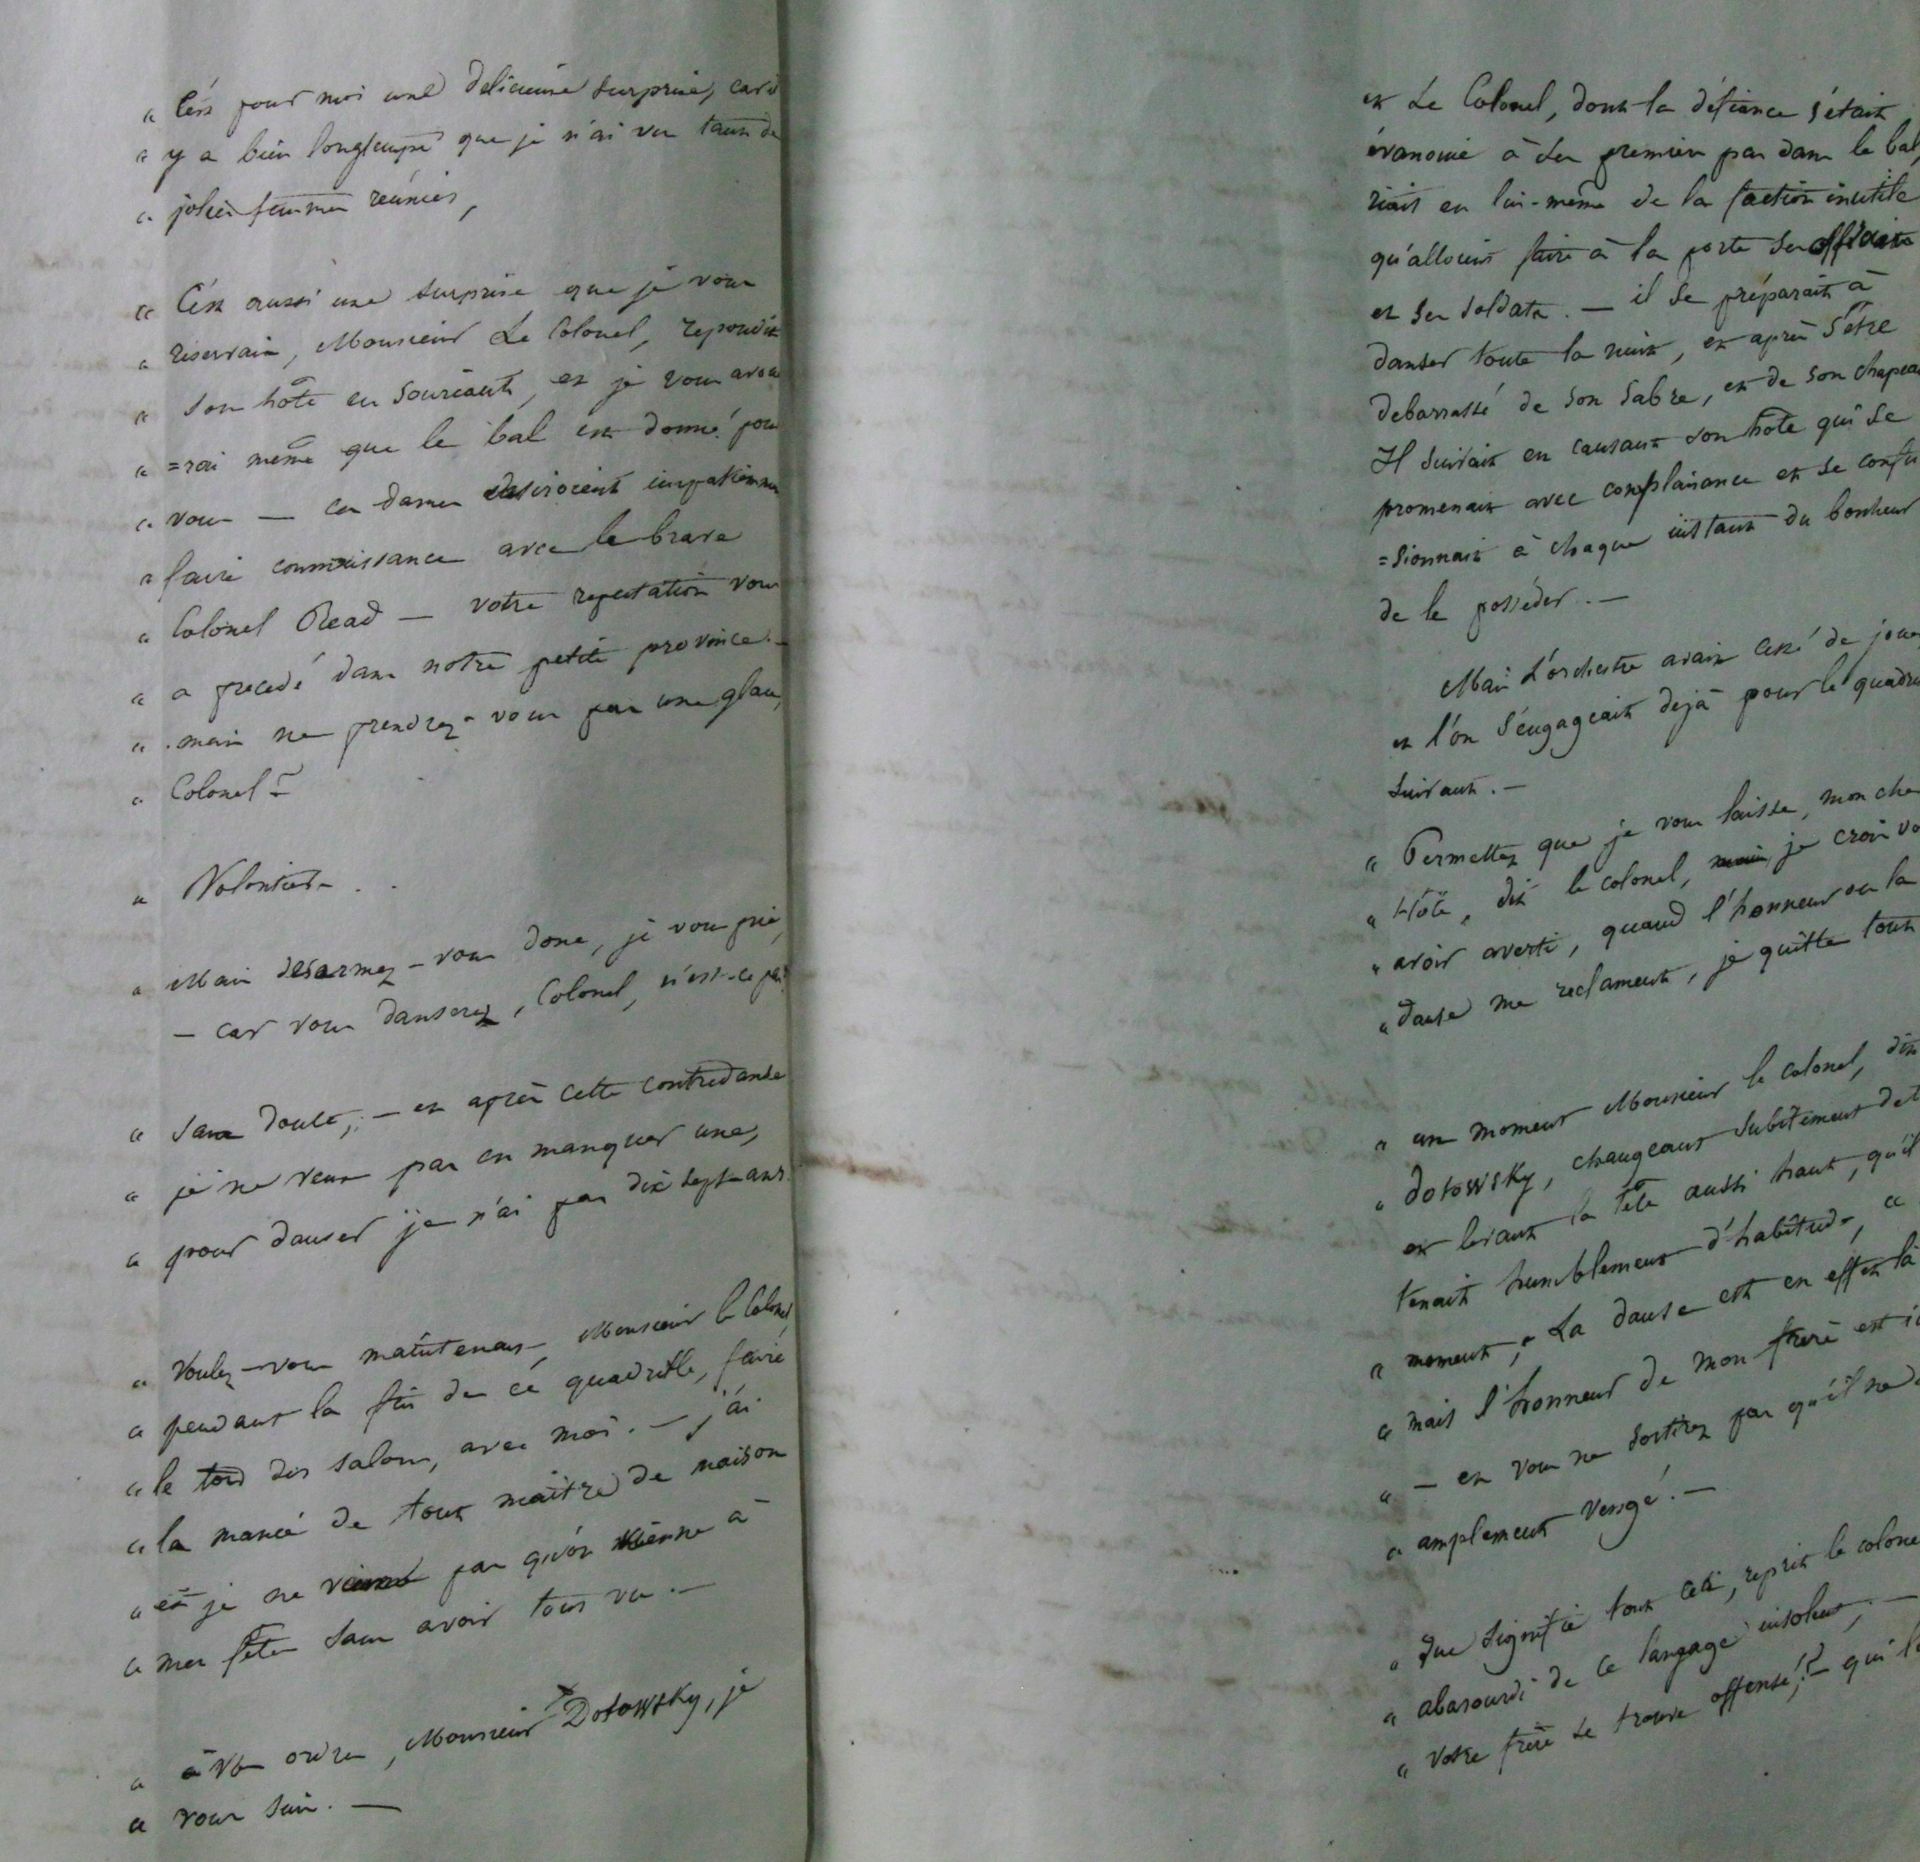 « C'est pour moi une delicieuse surprise, car il
« y a bien longtemps que je n'ai vu tant de
« jolies femmes reunies,
« C'est aussi une surprise que je vous
« reservais, Monsieur Le Colonel, repondit
« son hôte en souriant, et je vous avoue
« =rai même que le bal est donné pour
« vous — ces dames desiroient impatiemment
« faire connaissance avec le brave
« Colonel Read — votre reputation vous
« a precedé dans notre petite province. —
« mais ne prendrez-vous pas une glace,
« Colonel? —
« Volontiers. .
« Mais desarmez-vous donc, je vous prie,
— car vous danserez, Colonel, n'est-ce pas?
« Sans doute, — et après cette contredanse
« je ne veux pas en manquer une,
« pour danser je n'ai pas dix sept ans.
« Voulez-vous maintenant, Monsieur le Colonel,
« pendant la fin de ce quadrille, faire
« le tour des salons, avec moi. — j'ai
« la manie de tout maître de maison
« et je ne veux pas qu'on vienne à
« mes fêtes sans avoir tout vu. —
« à vos ordres, Monsieur Dotowsky, je
« vous suis. —
et Le Colonel, dont la défiance s'était
évanouie à ses premiers pas dans le bal,
riait en lui-même de la faction inutile
qu'alloient faire à la porte ses officiers
et ses soldats. — il se préparait à
danser toute la nuit, et après s'être
debarrassé de son sabre, et de son chapeau
Il suivait en causant son hôte qui se
promenait avec complaisance et se confes
=sionnait à chaque instant du bonheur
de le posséder. —
Mais L'orchestre avait cessé de jouer
et l'on s'engageait déjà pour le quadrille
suivant. —
« Permettez que je vous laisse, mon cher
« Hôte, dit le colonel, mais je crois vous
« avoir averti, quand l'honneur ou la
« danse me reclament, je quitte tout
« un moment Monsieur le colonel, dit
« Dotowsky, changeant subitement de t
et levant la tête aussi haut, qu'il
tenait humblement d'habitude, «
« moment, « La danse est en effet là
« mais l'honneur de mon frere est ici
« — et vous ne sortirez pas qu'il ne
« amplement vengé. —
« Que signifie tout cela, reprit le colonel
« abasourdi de ce langage insolent, —
« Votre frère se trouve offensé!? — qui l